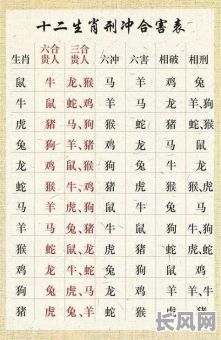 十二生肖刑冲合害表
六合 三合
生肖 贵人 贵人 六冲 六害 相破 相刑
鼠 牛 龙、猴 马 羊 鸡 兔
牛 鼠 蛇、鸡 羊 马 龙 羊、狗
虎 猪 马、狗 猴 蛇 猪 蛇、猴
兔 狗 羊、猪 鸡 龙 马 鼠
龙 鸡 鼠、猴 狗 兔 牛 龙
蛇 猴 牛、鸡 猪 虎 猴 猴、虎
马 羊 虎、狗 鼠 牛 兔 马
羊 马 兔、猪 牛 鼠 狗 牛、狗
猴 蛇 鼠、龙 虎 猪 蛇 虎、蛇
鸡 龙 牛、蛇 兔 狗 鼠 鸡
狗 兔 虎、马 龙 鸡 羊 牛、羊
猪 虎 兔、羊 蛇 猴 虎 猪
长风网